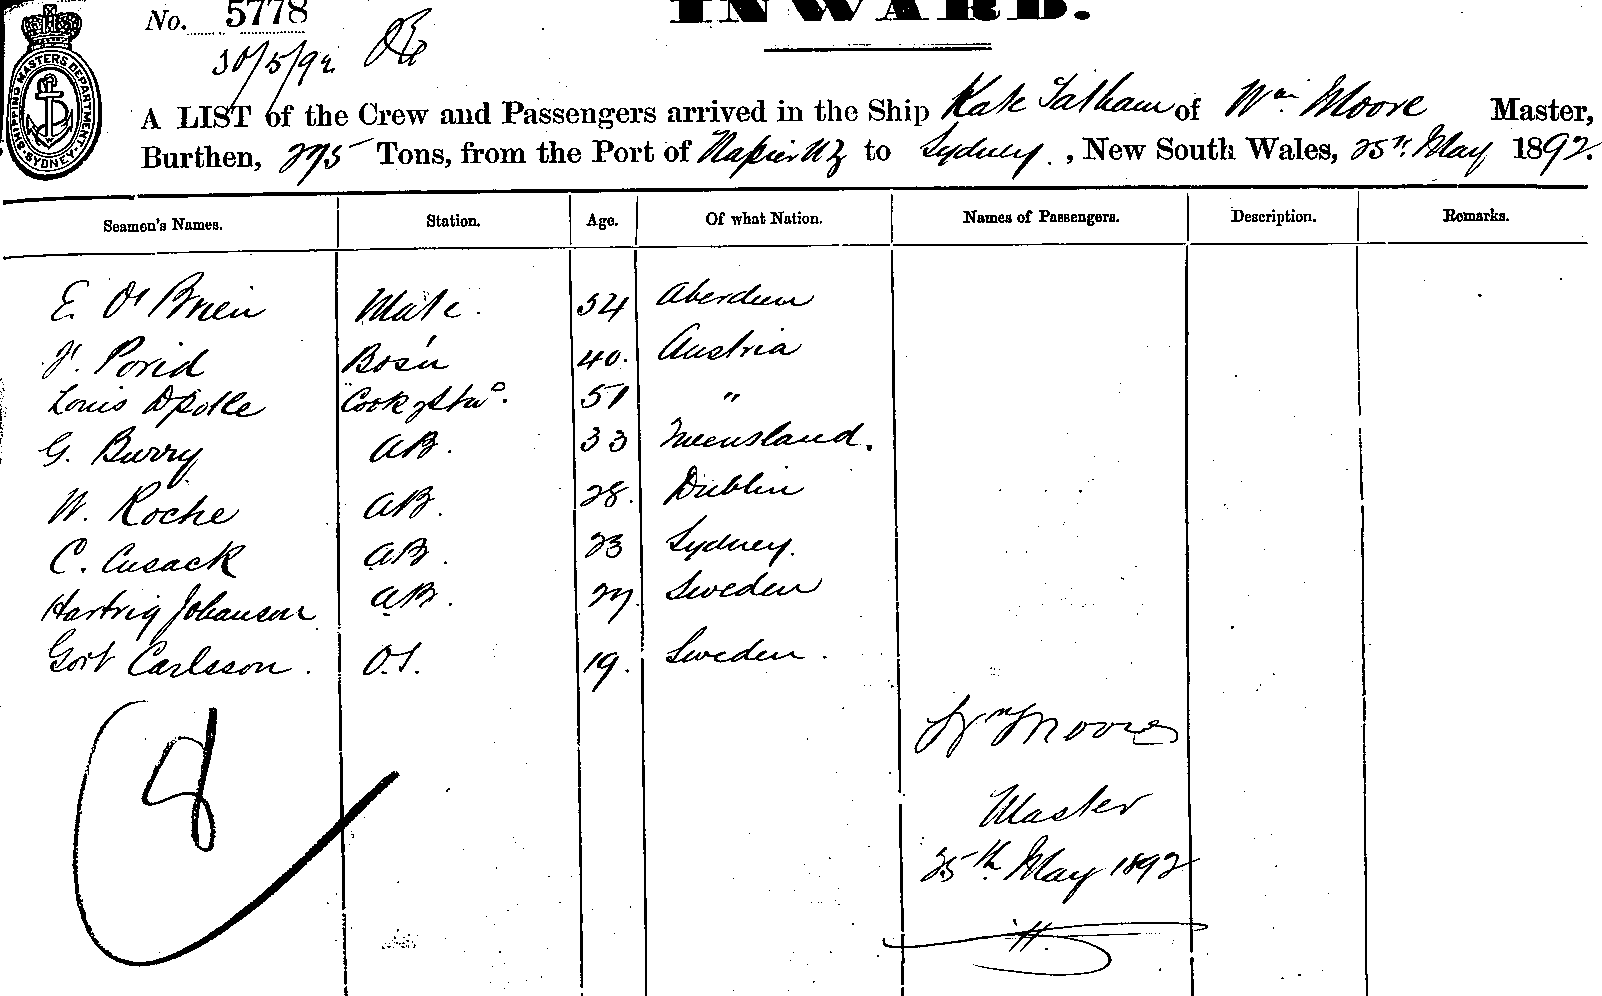 No. 5778
INWARD.
30/5/92
SHIPPING MASTERS DEPARTMENT. SYDNEY.
A LIST of the Crew and Passengers arrived in the Ship Kate Tatham of Wm Moore Master,
Burthen, 295 Tons, from the Port of Napier NZ to Sydney, New South Wales, 25th May 1892.
Seamen's Names. Station. Age. Of what Nation. Names of Passengers. Description. Remarks.
E. O'Brien Mate. 54 Aberdeen
Porid Bos'n 40. Austria
Louis Cook & Stwd. 51 "
G. Burry AB. 33 Queensland.
W. Roche AB. 28. Dublin
C. Cusack AB. 23 Sydney.
Hartvig Johanson AB. 27 Sweden
Carlsson. O.S. 19. Sweden.
8
Wm Moore
Master
25th May 1892